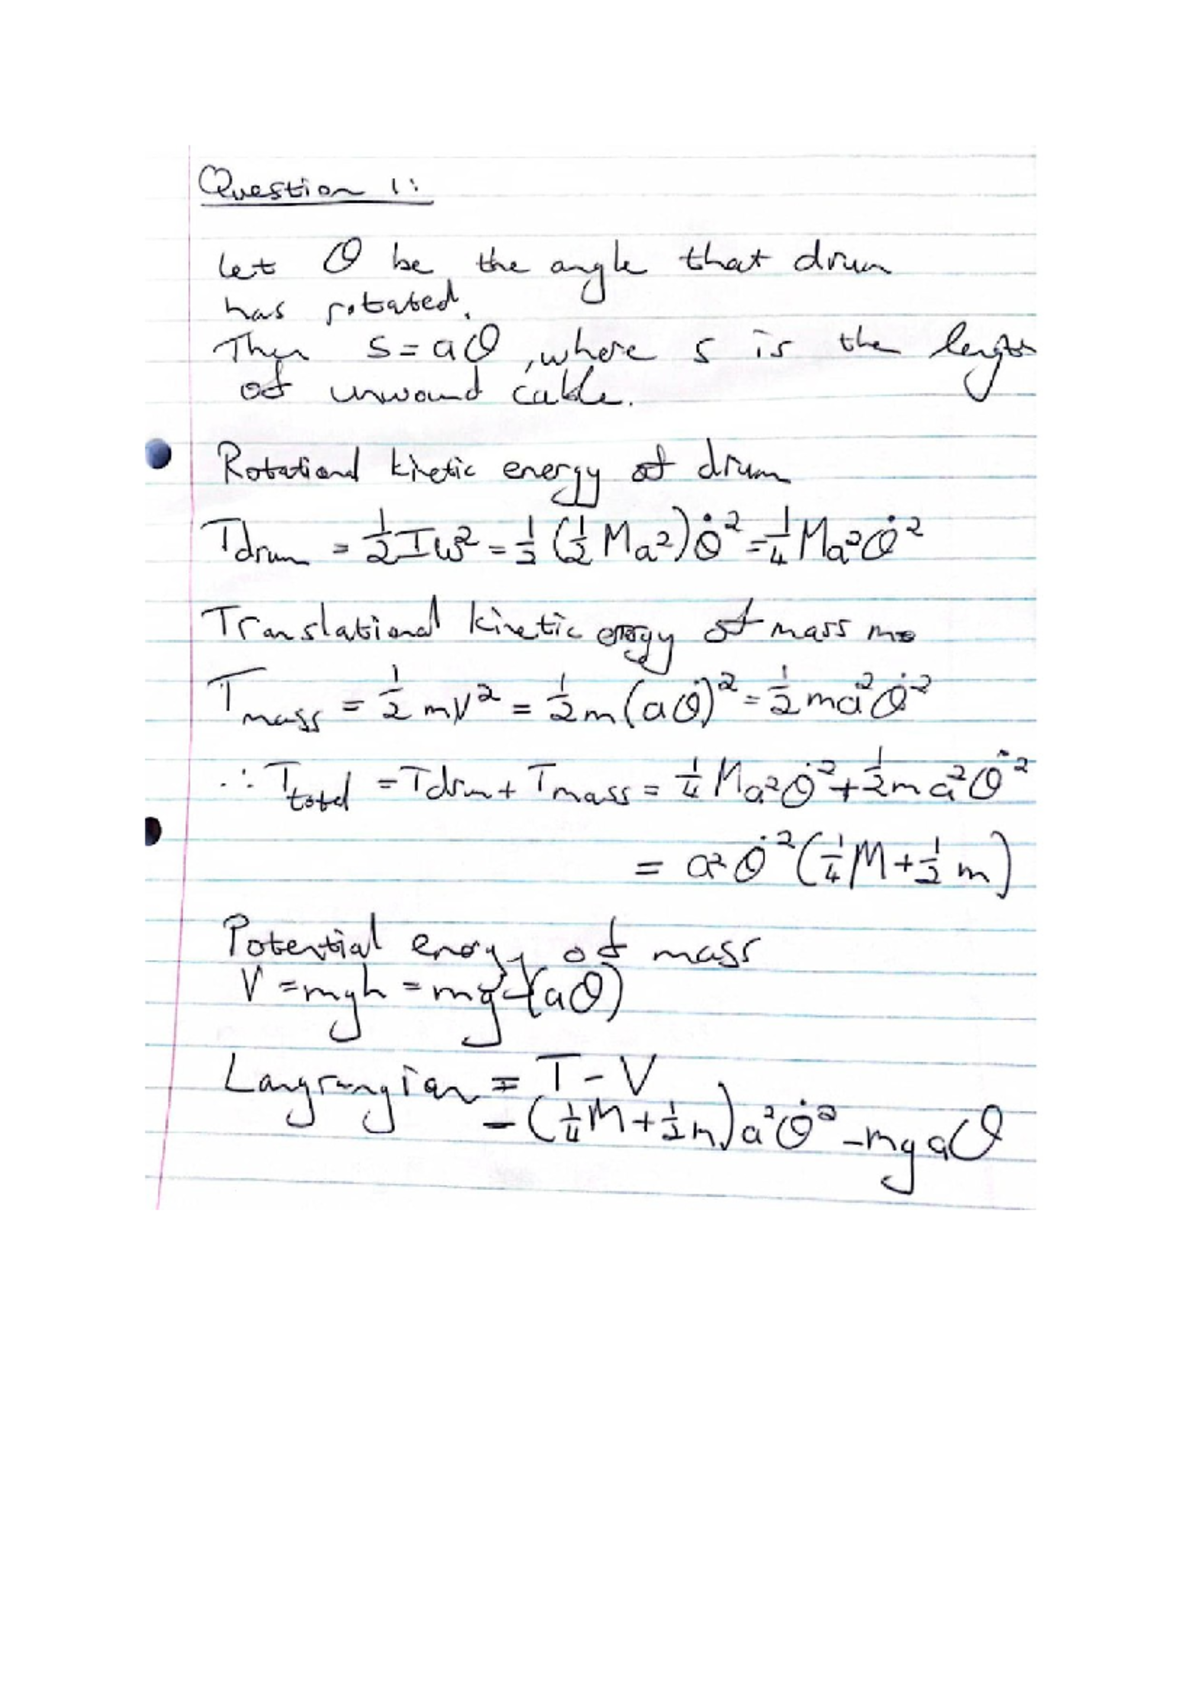 Question 1:
Let θ be the angle that drum
has rotated.
Then s = aθ, where s is the length
of unwound cable.
Rotational kinetic energy of drum
Tdrum = 1/2 Iω² = 1/2 (1/2 Ma²) θ̇² = 1/4 Ma²θ̇²
Translational kinetic energy of mass m
Tmass = 1/2 mv² = 1/2 m(aθ̇)² = 1/2 ma²θ̇²
∴ Ttotal = Tdrum + Tmass = 1/4 Ma²θ̇² + 1/2 ma²θ̇²
= a²θ̇² (1/4 M + 1/2 m)
Potential energy of mass
V = mgh = mg(aθ)
Langrangian = T - V
= (1/4 M + 1/2 m) a²θ̇² - mgaθ